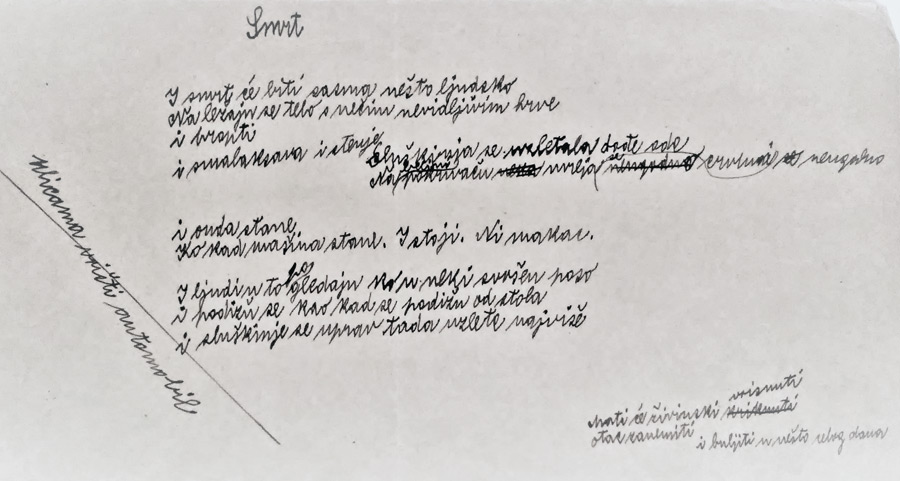 Smrt
I smrt će biti sasma nešto ljudsko
Na ležaju se telo s nečim nevidljivim hrve
i hropti
i malaksava i stenje
Sluškinja se uzletala dođe ode
Na mrlja crvena neugodno
i onda stane.
Ko kad mašina stane. I stoji. Ni makac.
I ljudi u to gledaju ko u neki svršen poso
i podižu se kao kad se podižu od stola
i sluškinje se uprav tada uzlete najviše
ulicama vrišti automobil
Mati će živinski vrisnuti
otac zanemiti
i buljiti u nešto celog dana